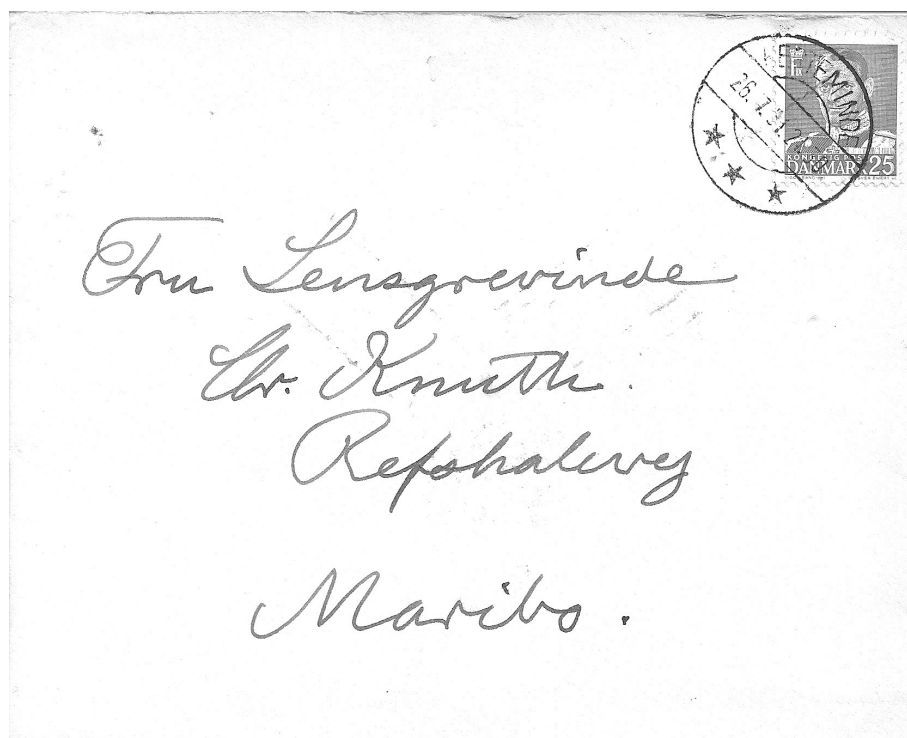 KERTEMINDE
26.7.51.
KONGELIG POST
DANMARK 25
Fru Lensgrevinde
Chr. Knuth.
Refshalevej
Maribo.